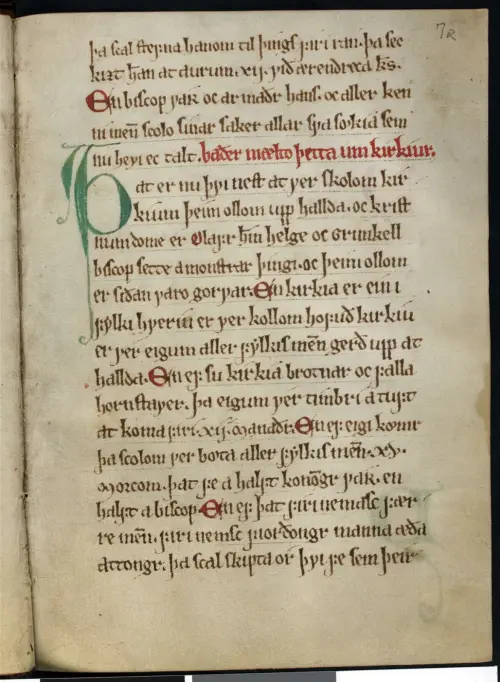 7R
þa scal stefna hanom til þings firi ran. þa se
kizt han at aurum .xij. við ærendreca ks.
En biscop vak oc armaðr hans. oc aller ken
ni menn scolo sinar saker allar sva sokia sem
nu hevi ec talt. baðer mælto þetta um kirkiur.
Þat er nu þvi nest at vér skolom kir
kium þeim ollom upp hallda. oc krist
num dome er Olafr hinn helge oc Grimkell
biscop sette amonstrar þingi. oc þeim ollom
er siðan varo gorvar. En kirkia er ein i
fylki hveriu er ver kollom hofuð kirkiu
er ver eigum aller fylkis menn gerð upp at
hallda. En ef su kirkia brotnar oc falla
hornstaver. þa eigum ver timbri a tuft
at koma firi .xij. manaðr. En ef eigi komr
þa scolom ver bota aller fylkis menn .xv.
morcom. þat fe a halft konongr vak. en
halft a biscop. En ef þat firi nemasc fær
re menn. firi nemsc fiorðongr manna æða
attongr. þa scal skipta or þvi fe sem þeir